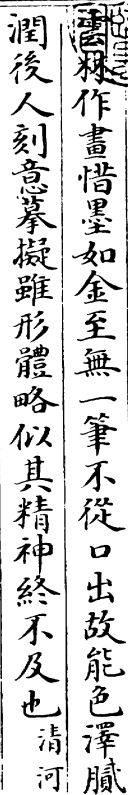 雲林作畫惜墨如金至無一筆不從口出故能色澤膩
潤後人刻意摹擬雖形體略似其精神終不及也清河